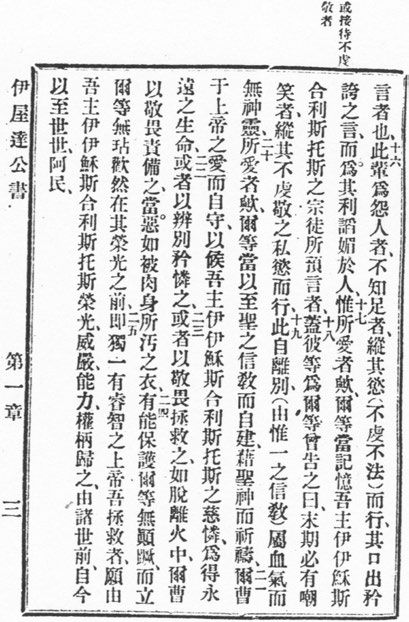 或接待不虔
敬者
言者也十六此輩爲怨人者、不知足者、縱其慾(不虔不法)而行、其口出矜
誇之言、而爲其利諂媚於人、十七惟所愛者歟、爾等當記憶吾主伊伊穌斯
合利斯托斯之宗徒所預言者、十八蓋彼等爲爾等曾告之曰、末期必有嘲
笑者、縱其不虔敬之私慾而行、十九此自離別(由惟一之信敎)屬血氣而
無神靈、二十所愛者歟、爾等當以至聖之信敎而自建、藉聖神而祈禱、二一爾曹
于上帝之愛而自守、以候吾主伊伊穌斯合利斯托斯之慈憐、爲得永
遠之生命、二二或者以辨別矜憐之、二三或者以敬畏拯救之、如脫離火中、爾曹
以敬畏責備之、當惡如被肉身所汚之衣、二四有能保護爾等無顚蹶、而立
爾等無玷歡然在其榮光之前、二五卽獨一有睿智之上帝、吾拯救者、願由
吾主伊伊穌斯合利斯托斯榮光、威嚴、能力、權柄歸之、由諸世前、自今
以至世世、阿民、
伊屋達公書 第一章 三